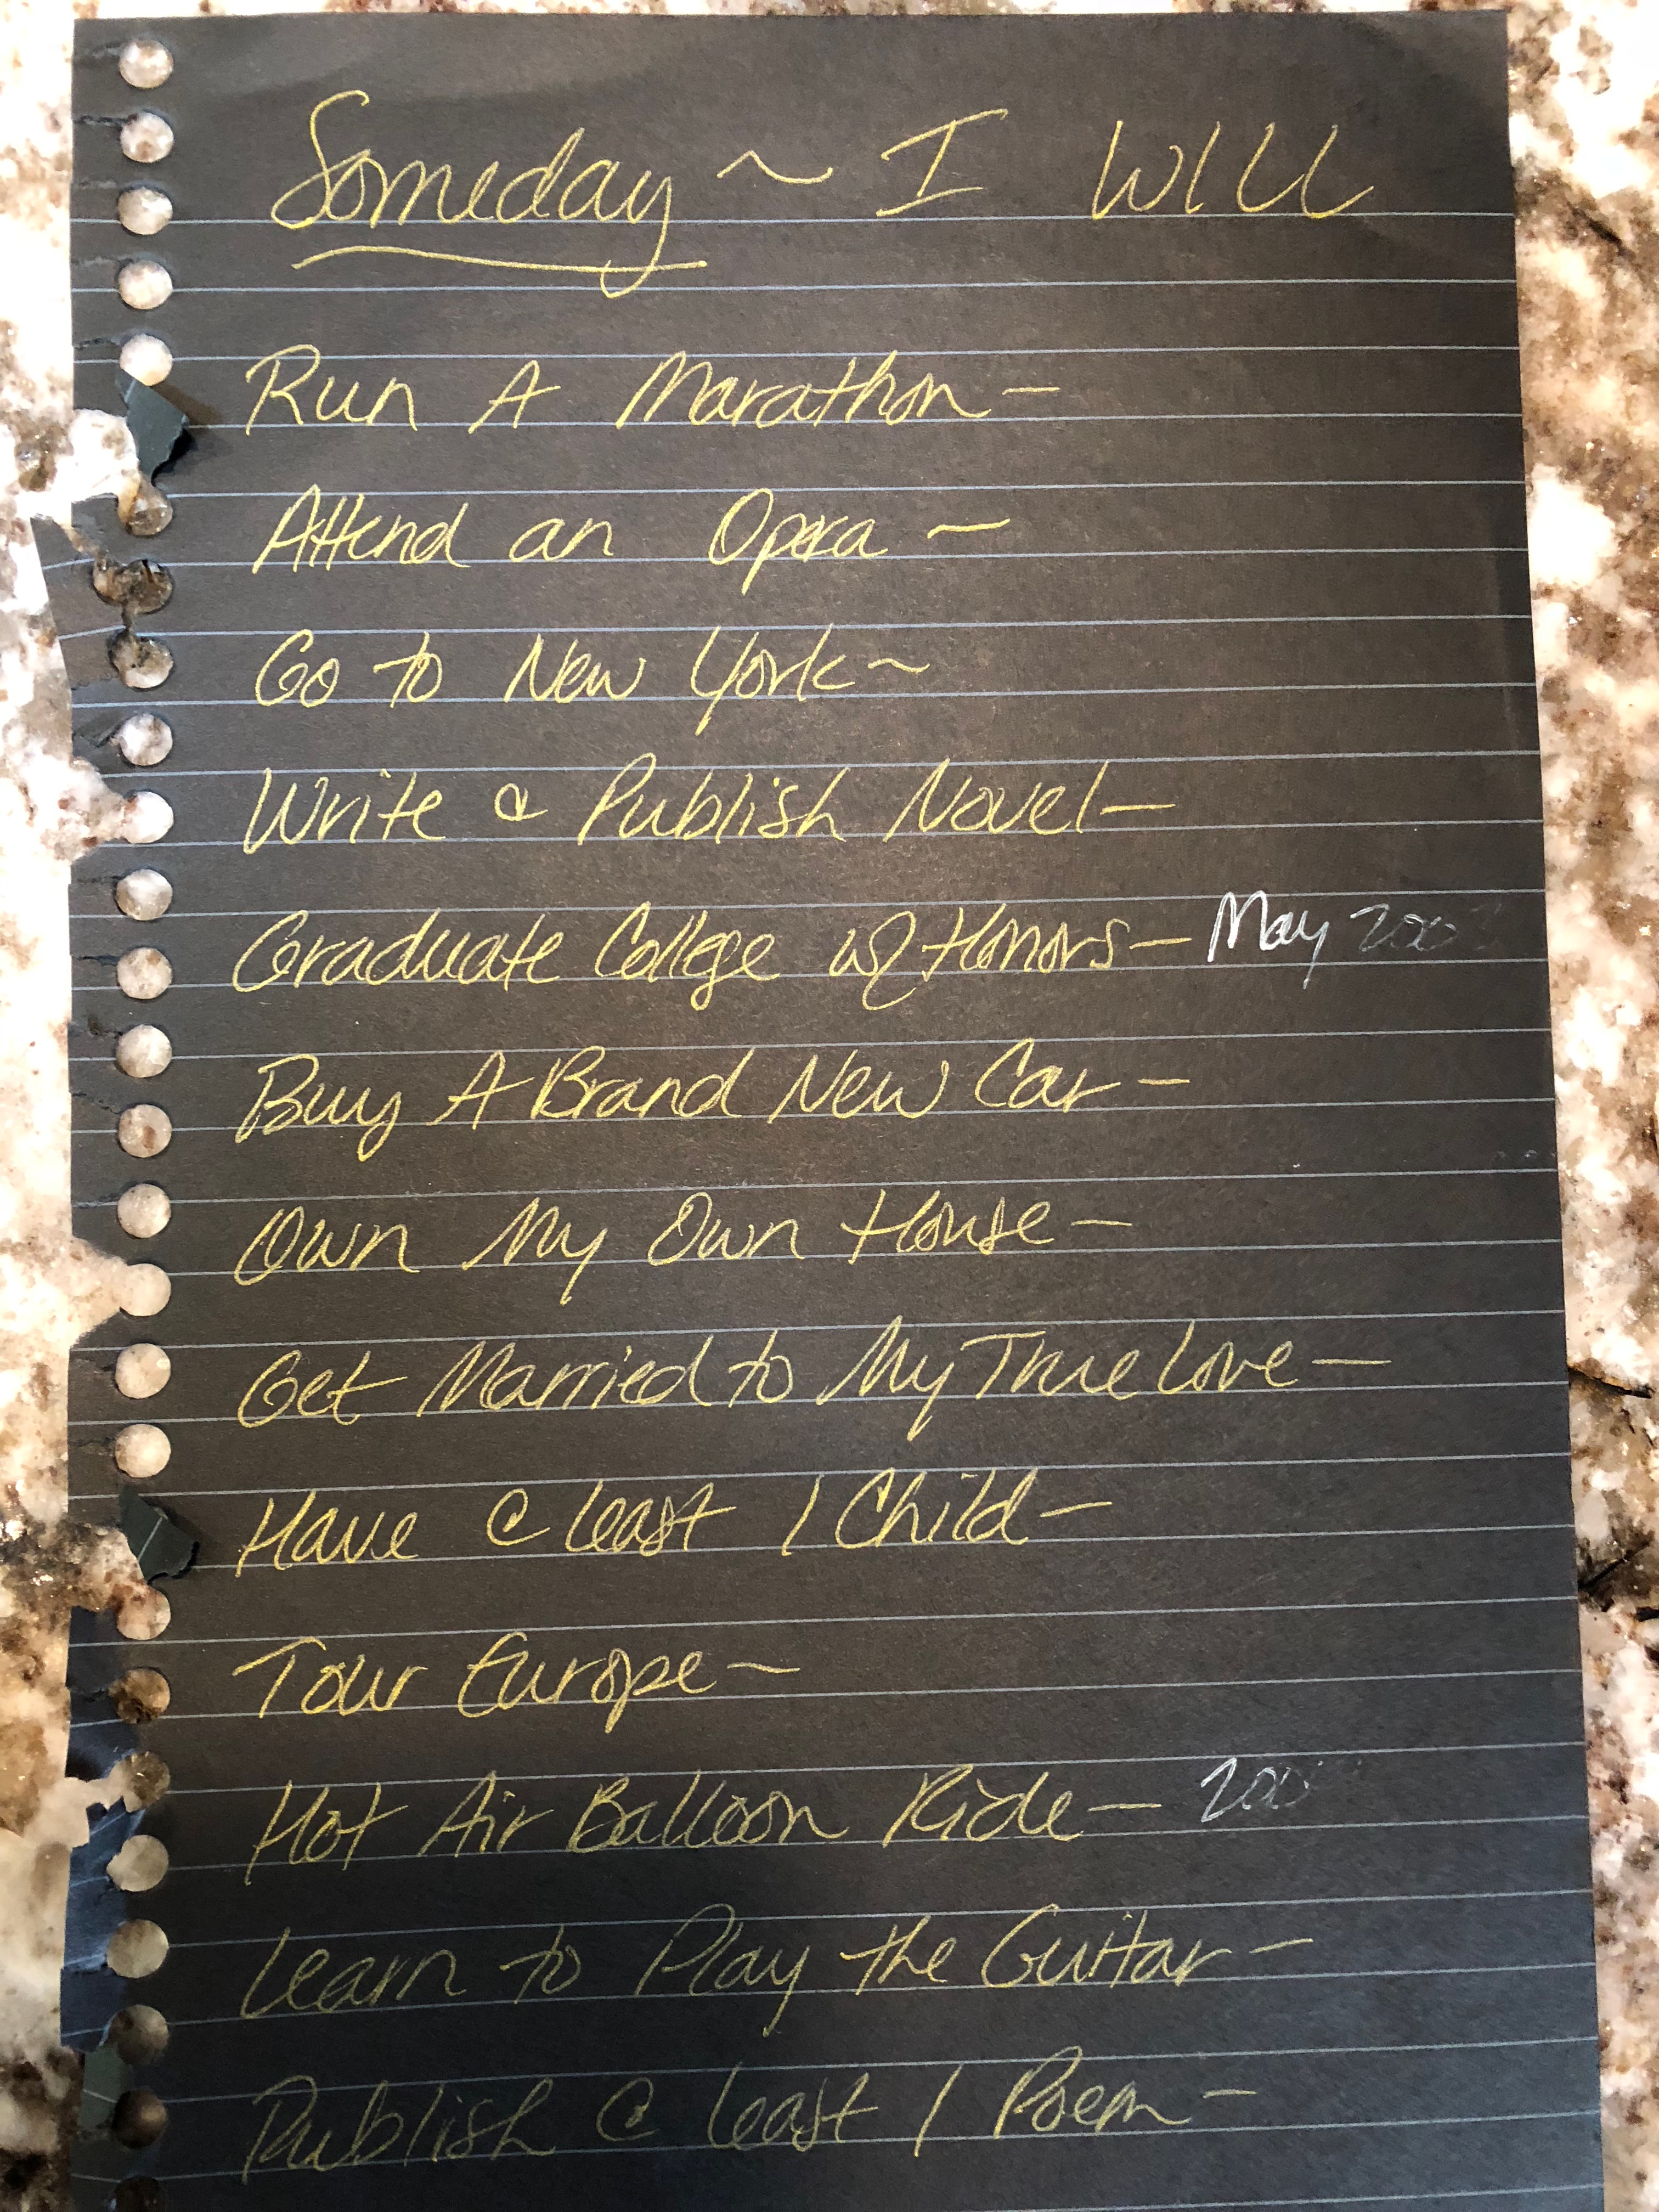 Someday ~ I WILL
Run A Marathon —
Attend an Opera —
Go to New York ~
Write & Publish Novel —
Graduate College w/ Honors — May
Buy A Brand New Car —
Own My Own House —
Get Married to My True Love —
Have @ least 1 Child —
Tour Europe —
Hot Air Balloon Ride —
Learn to Play the Guitar —
Publish @ least 1 Poem —